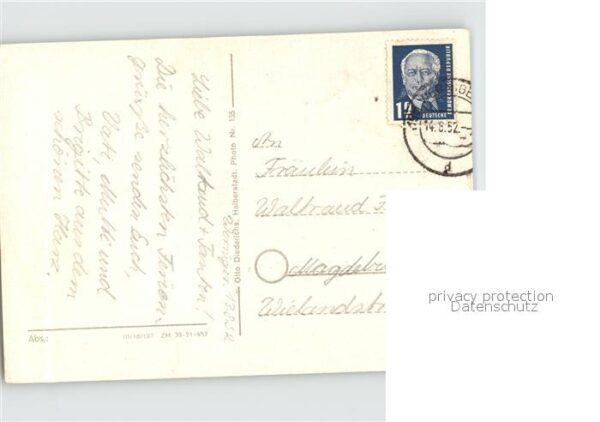 Liebe Waltraud + Tanten!
Die herzlichsten Ferien-
grüße senden Euch,
Vati, Mutti und
Brigitte aus dem
schönen Harz.
Abs.:
III/18/197 ZM 30-31-652
Otto Diederichs, Halberstadt. Photo Nr. 135
12
DEUTSCHE
DEMOKRATISCHE REPUBLIK
14.8.52
d
An
Fräulein
Waltraud
Magdebu
Wielandstr
privacy protection
Datenschutz